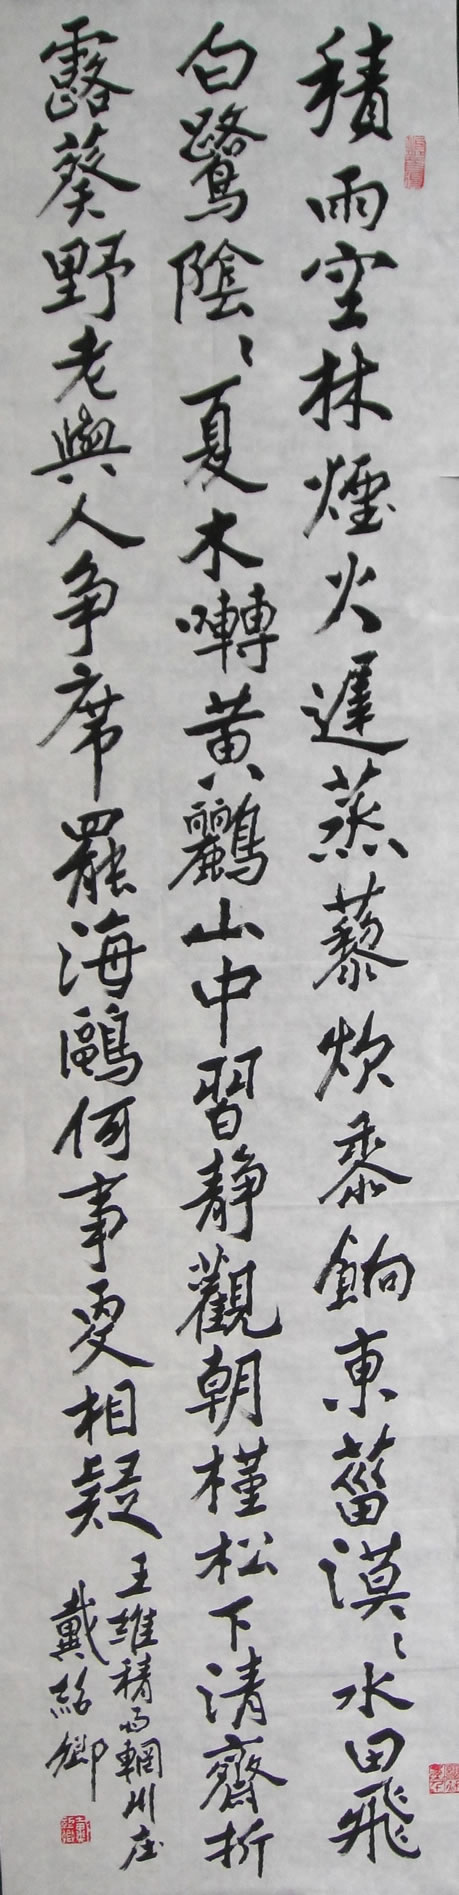 積雨空林煙火遲蒸藜炊黍餉東菑漠〻水田飛
白鷺陰〻夏木囀黄鸝山中習静觀朝槿松下清齋折
露葵野老與人争席罷海鷗何事更相疑
王維積雨輞川庄
戴紹